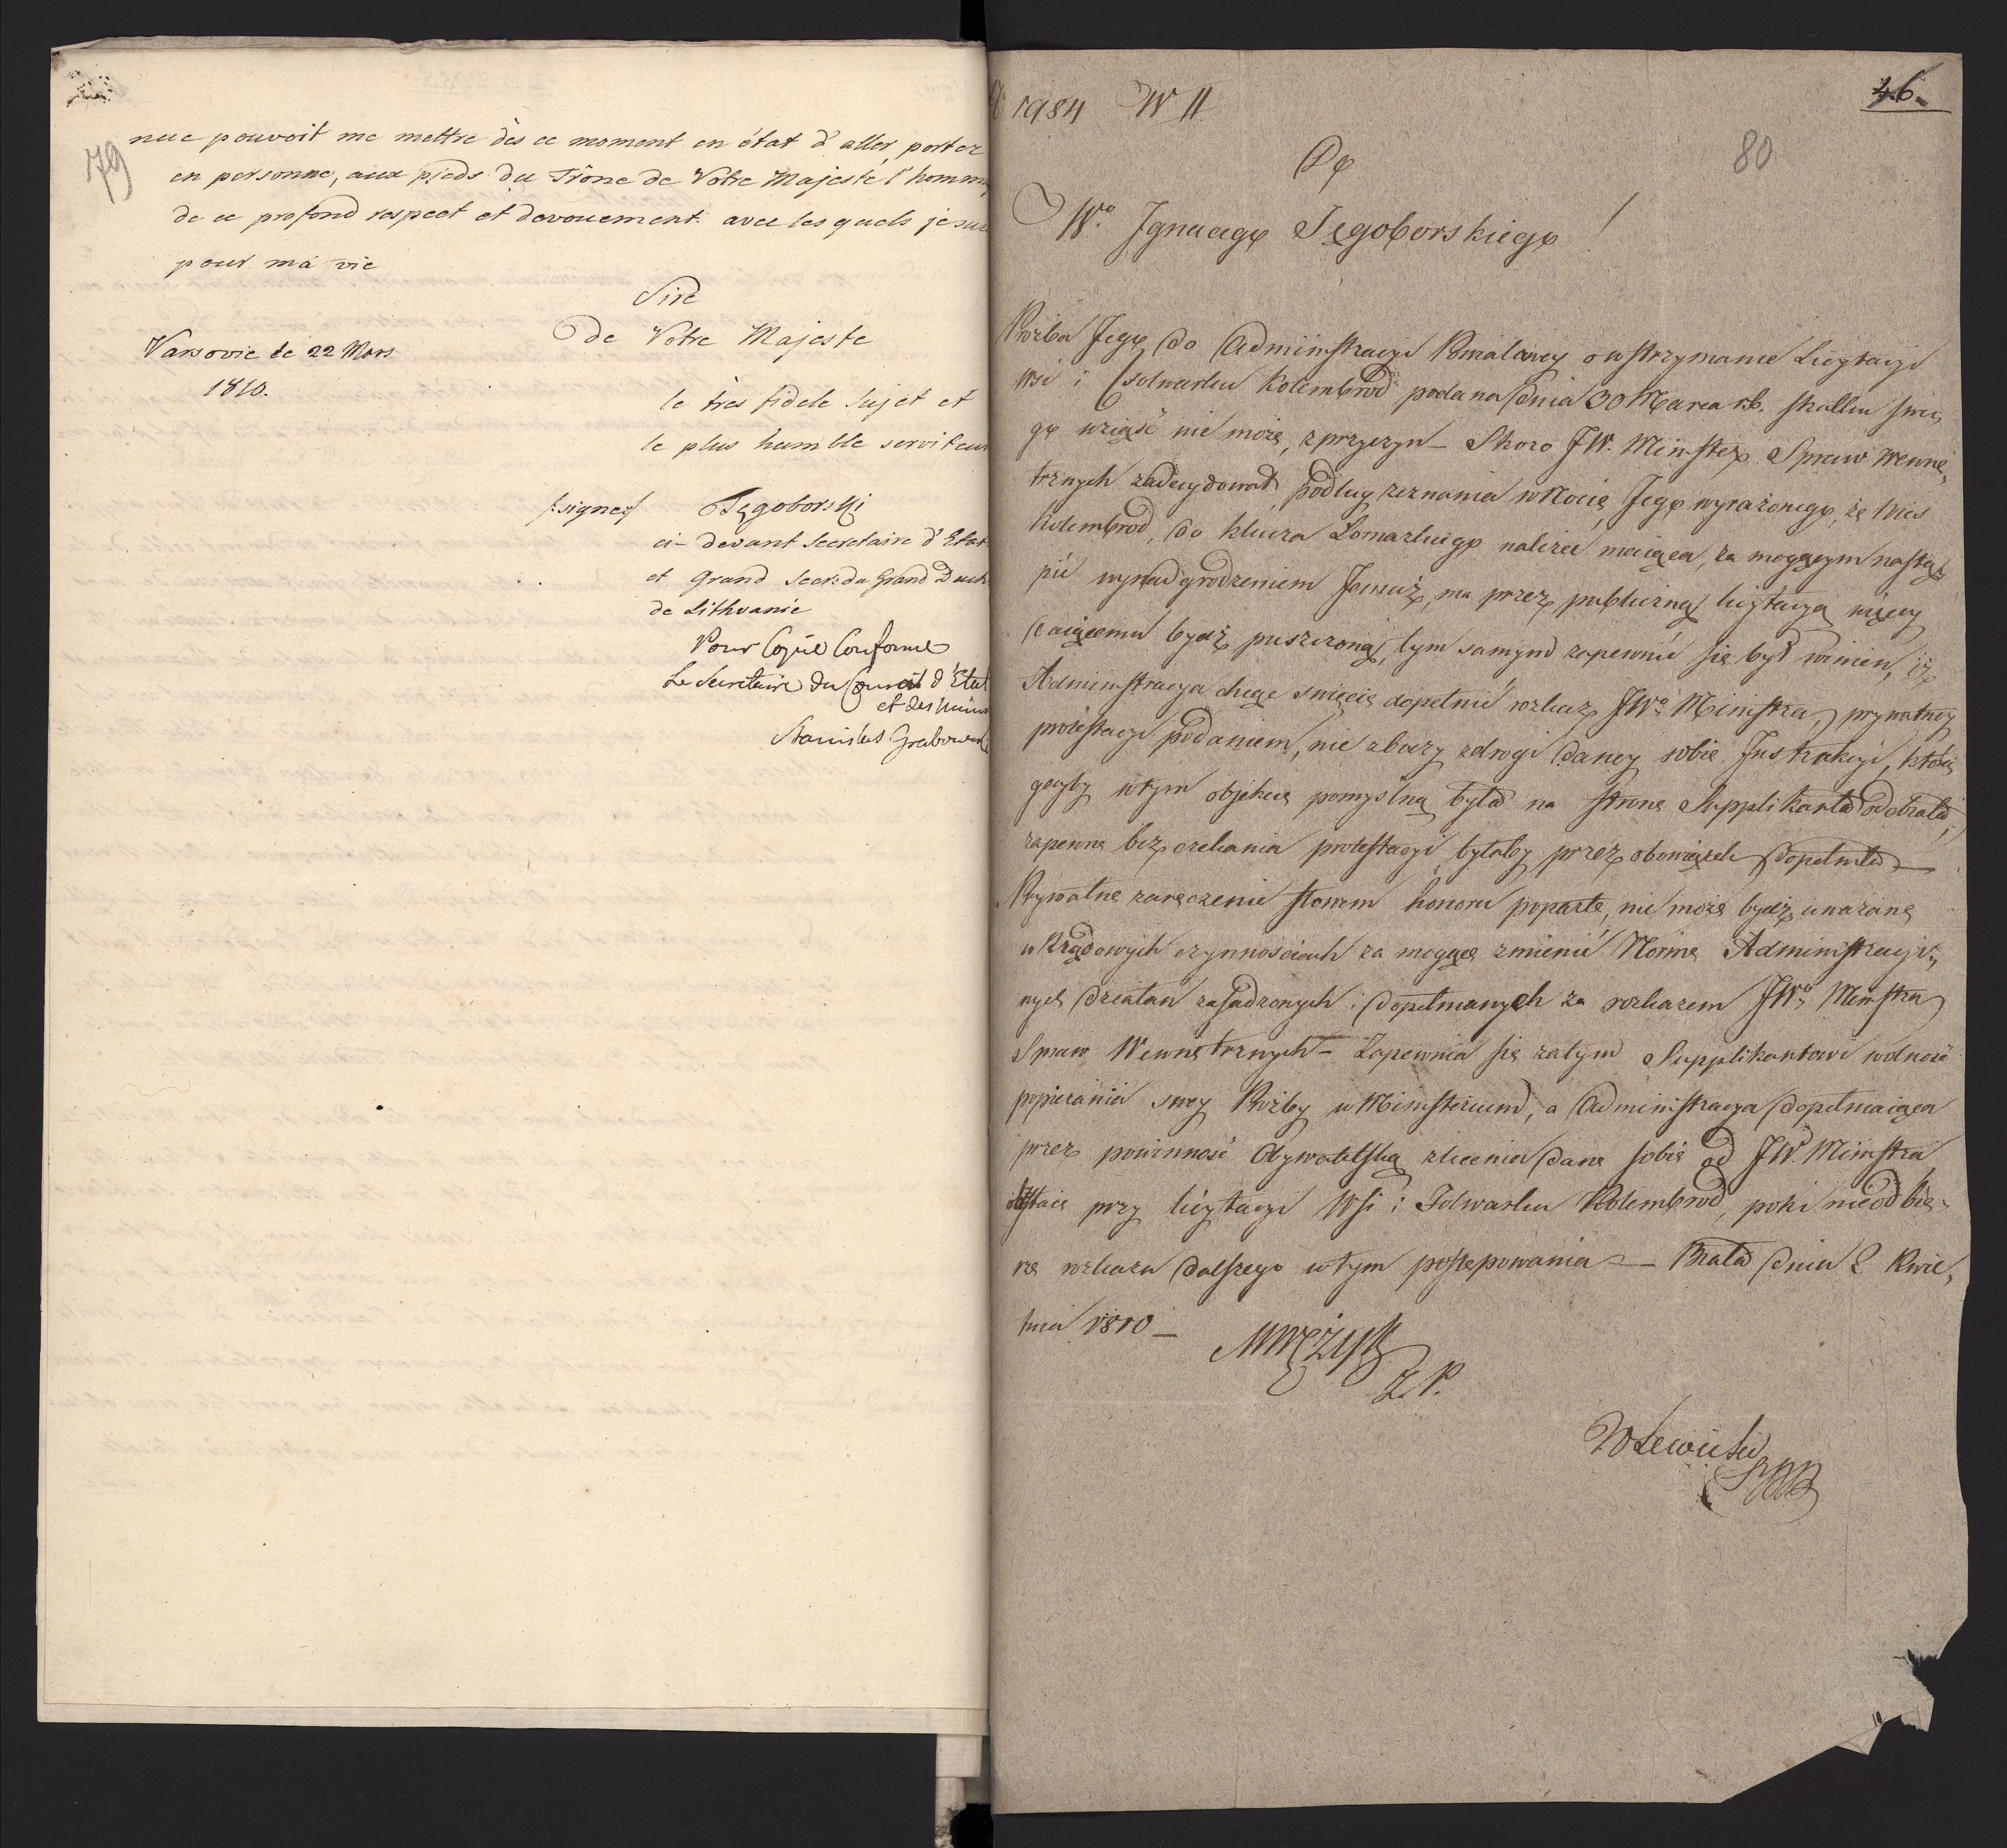 79
nue pouvoit me mettre dès ce moment en état d'aller porter
en personne, aux pieds du Trône de Votre Majesté l'homma
de ce profond respect et devouement avec les quels je sui
pour ma vie
Sire
de Votre Majeste
Varsovie le 22 Mars
1810.
le très fidele Sujet et
le plus humble serviteur
/:signé:/ Tęgoborski
ci-devant Secretaire d'Etat
et Grand Secr: du Grand Duch
de Lithuanie
Pour Copie Conforme
Le Secretaire du Conseil d'Etat
et des Minis
Stanislas Grabowski
1984 W II
46.
80
Do
Wo. Ignacego Tęgoborskiego!
Prozba Jego do Administracyi Powiatowey o wstrzymanie Licytacyi
Wsi i Folwarku Kolembrod podana dnia 30 Marca r.b. skutku swe,
go wziąść nie może, z przyczyn – Skoro JW. Minister Spraw Wewnę,
trznych zadecydował, podług zeznania w Nocie Jego wyrażonego, że Wieś
Kolembrod, do klucza Łomazkiego należeć maiąca, za mogącym nastą,
pić wynadgrodzeniem Jemuż, ma przez publiczną licytacyą więcey
daiącemu bydź puszczoną, tym samym zapewnić się był winien, iż
Administracya chcąc święcie dopełnić rozkaz JWo. Ministra, prywatney
protestacyi podaniem, nie zboczy z drogi daney sobie Instrukcyi, którą
gdyby w tym objekcie pomyślną była na stronę Supplikanta odebrała,
zapewne bez czekania protestacyi byłaby przez obowiązek dopełniła –
Prywatne zaręczenie słowem honoru poparte, nie może bydź uważane
w Rządowych czynnościach za mogące zmienić Normę Administracyi,
nych działań zasadzonych i dopełnianych za rozkazem JWo. Ministra
Spraw Wewnętrznych – Zapewnia się zatym Supplikantowi wolność
popierania swey Prozby w Ministerium, a Administracya dopełniaiąca
przez powinność Obywatelską zlecenia dane sobie od JW. Ministra
obstaie przy licytacyi Wsi i Folwarku Kolembrod, poki nie odbie,
rze rozkazu dalszego w tym postępowania – Biała dnia 2 Kwie,
tnia 1810 –
Z.P.